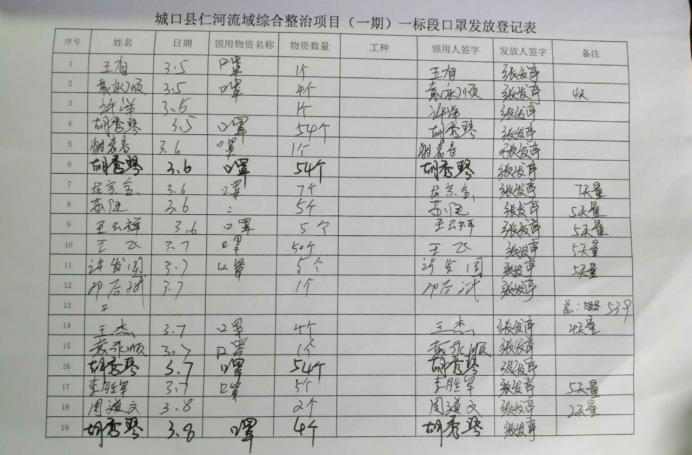 城口县仁河流域综合整治项目（一期）一标段口罩发放登记表
序号 姓名 日期 领用物资名称 物资数量 工种 领用人签字 发放人签字 备注
1 3.5 口罩 1个 张发亭
2 袁永顺 3.5 口罩 4个 袁永顺 张发亭 4天
3 许洋 3.5 1个 许洋 张发亭
4 胡秀琴 3.5 口罩 54个 胡秀琴 张发亭
5 3.6 口罩 1个 张发亭
6 胡秀琴 3.6 口罩 54个 胡秀琴 张发亭
7 3.6 口罩 7个 张发亭 7天量
8 3.6 5个 张发亭 5天量
9 王云祥 3.6 口罩 5个 王云祥 张发亭 5天量
10 王飞 3.7 口罩 50个 王飞 张发亭 5天量
11 许发国 3.7 口罩 5个 许发国 张发亭 5天量
12 3.7 1个 张发亭
13 539
14 王杰 3.7 口罩 4个 王杰 张发亭 4天量
15 袁永顺 3.7 口罩 1个 袁永顺 张发亭
16 胡秀琴 3.7 口罩 54个 胡秀琴 张发亭
17 李胜军 3.7 口罩 5个 李胜军 张发亭 5天量
18 周道文 3.8 2个 周道文 张发亭 2天量
19 胡秀琴 3.8 口罩 4个 胡秀琴 张发亭